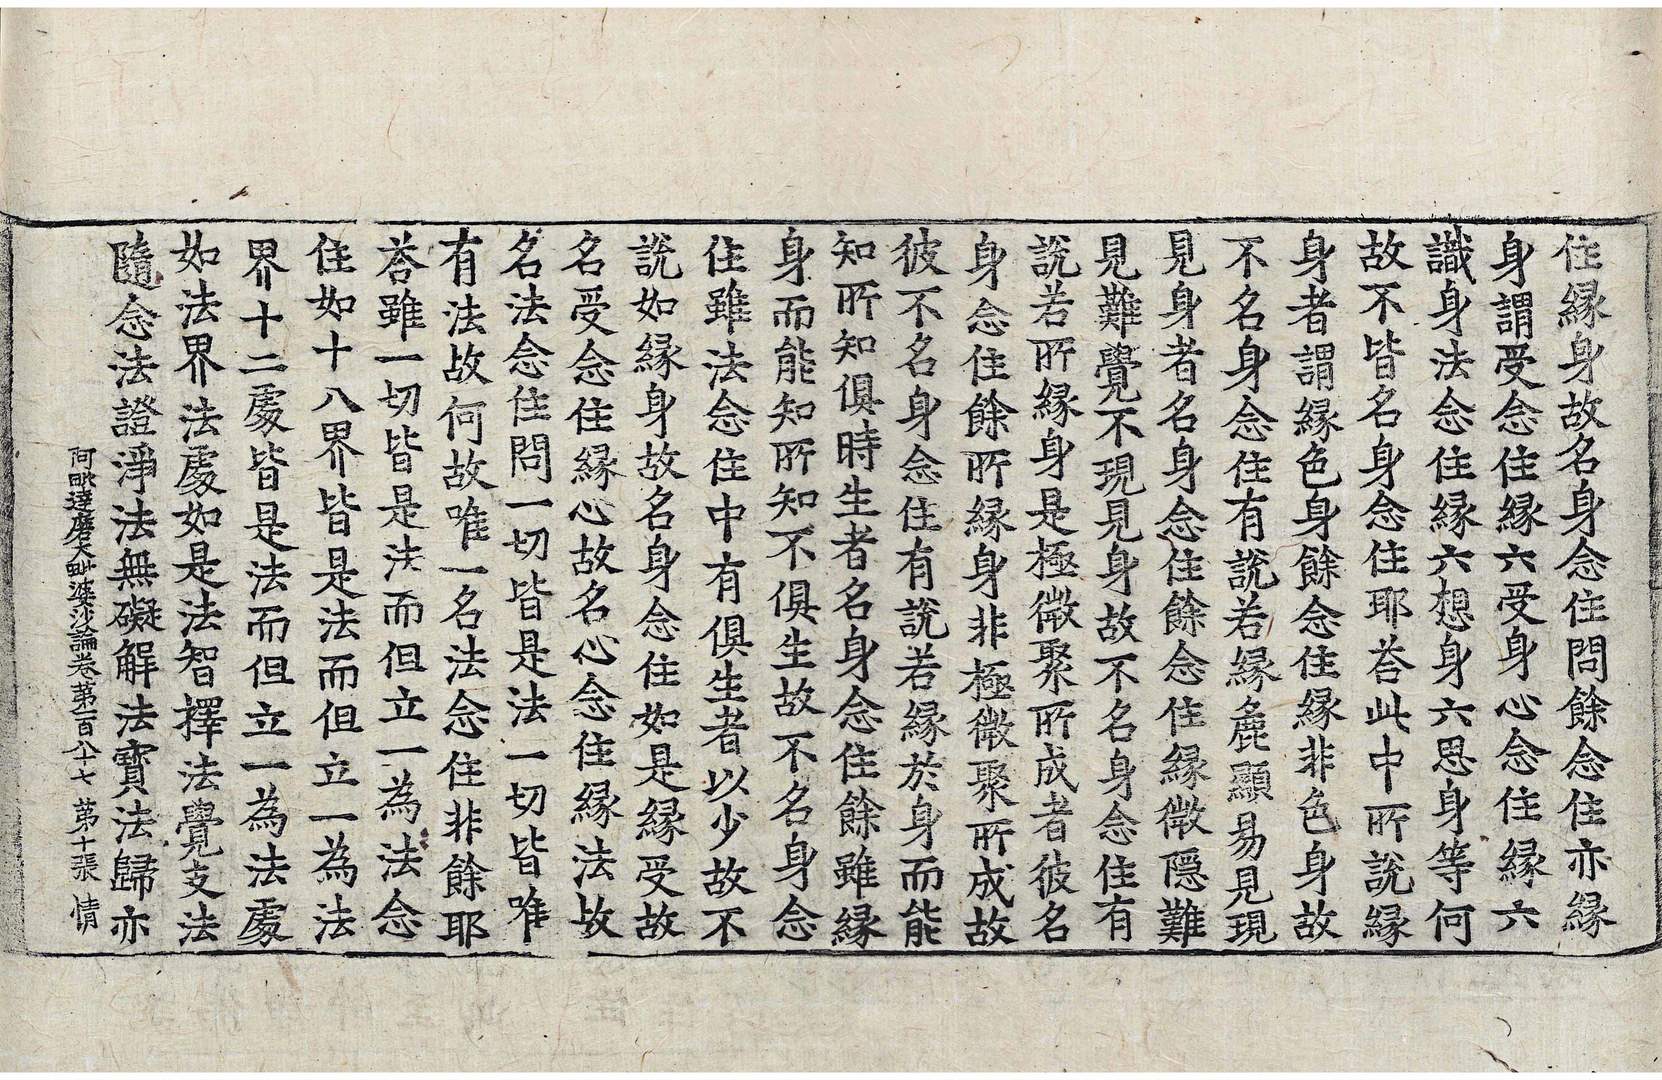 住緣身故名身念住問餘念住亦緣
身謂受念住緣六受身心念住緣六
識身法念住緣六想身六思身等何
故不皆名身念住耶荅此中所說緣
身者謂緣色身餘念住緣非色身故
不名身念住有說若緣麁顯易見現
見身者名身念住餘念住緣微隱難
見難覺不現見身故不名身念住有
說若所緣身是極微聚所成者彼名
身念住餘所緣身非極微聚所成故
彼不名身念住有說若緣於身而能
知所知俱時生者名身念住餘雖緣
身而能知所知不俱生故不名身念
住雖法念住中有俱生者以少故不
說如緣身故名身念住如是緣受故
名受念住緣心故名心念住緣法故
名法念住問一切皆是法一切皆唯
有法故何故唯一名法念住非餘耶
荅雖一切皆是法而但立一為法念
住如十八界皆是法而但立一為法
界十二處皆是法而但立一為法處
如法界法處如是法智擇法覺支法
隨念法證淨法無礙解法寶法歸亦
阿毗達磨大毗婆沙論卷第一百八十七 第十張 情